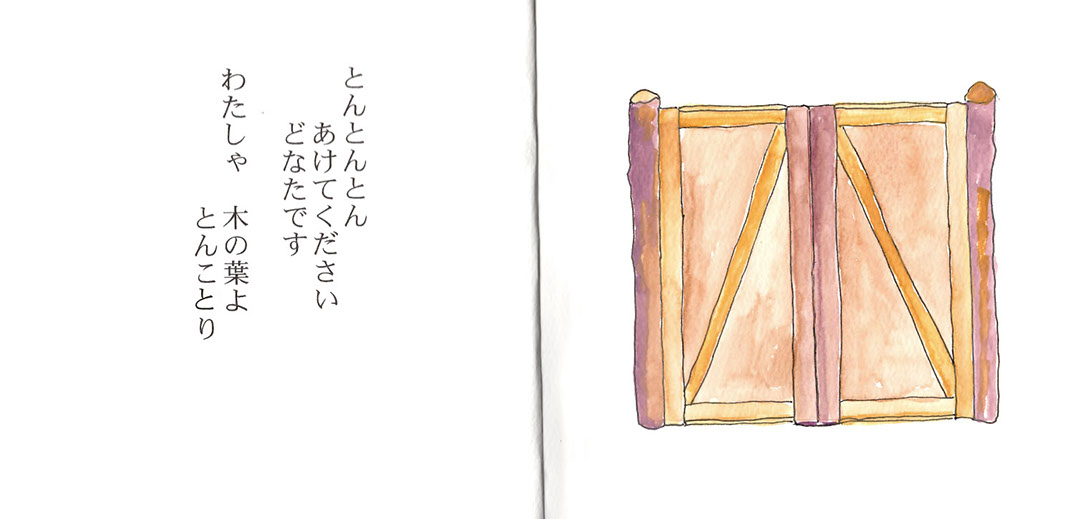 とんとんとん
あけてください
どなたです
わたしゃ　木の葉よ
とんことり